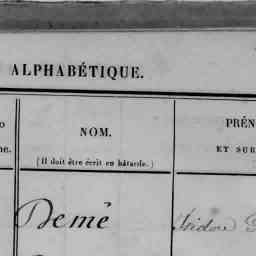 ALPHABÉTIQUE.
NOM. PRÉN
(Il doit être écrit en bâtarde.) ET SUR
Demé Isidore